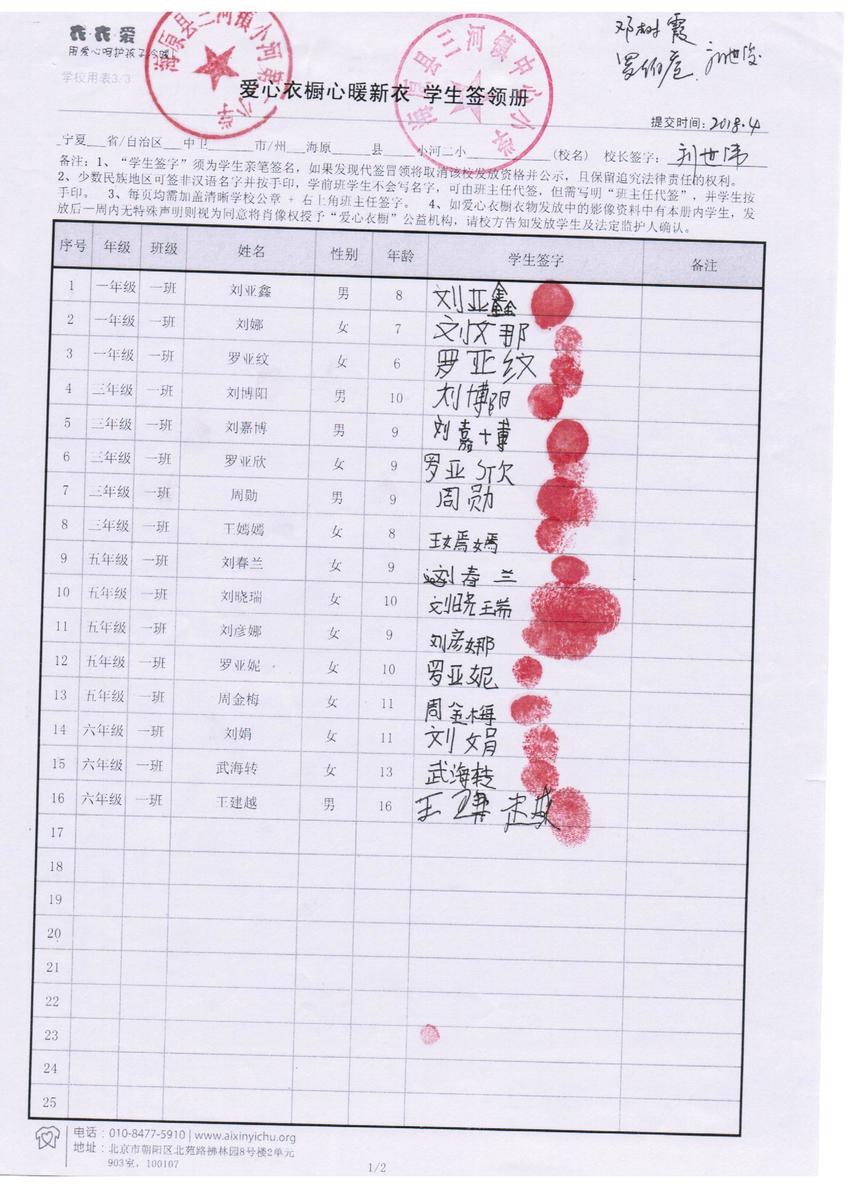 衣衣爱
用爱心呵护孩子冷暖!
学校用表3/3
海原县三河镇小河第二小学
海原县三河镇中心小学
邓树霞
刘世俊
爱心衣橱心暖新衣 学生签领册
提交时间:2018.4
宁夏 省/自治区 中卫 市/州 海原 县 小河二小 (校名) 校长签字:刘世伟
备注:1、“学生签字”须为学生亲笔签名,如果发现代签冒领将取消该校发放资格并公示,且保留追究法律责任的权利。
2、少数民族地区可签非汉语名字并按手印,学前班学生不会写名字,可由班主任代签,但需写明“班主任代签”,并学生按
手印。 3、每页均需加盖清晰学校公章 + 右上角班主任签字。 4、如爱心衣橱衣物发放中的影像资料中有本册内学生,发
放后一周内无特殊声明则视为同意将肖像权授予“爱心衣橱”公益机构,请校方告知发放学生及法定监护人确认。
序号 年级 班级 姓名 性别 年龄 学生签字 备注
1 一年级 一班 刘亚鑫 男 8 刘亚鑫
2 一年级 一班 刘娜 女 7 刘娜
3 一年级 一班 罗亚纹 女 6 罗亚纹
4 三年级 一班 刘博阳 男 10 刘博阳
5 三年级 一班 刘嘉博 男 9 刘嘉博
6 三年级 一班 罗亚欣 女 9 罗亚欣
7 三年级 一班 周勋 男 9 周勋
8 三年级 一班 王嫣嫣 女 8 王嫣嫣
9 五年级 一班 刘春兰 女 9 刘春兰
10 五年级 一班 刘晓瑞 女 10 刘晓瑞
11 五年级 一班 刘彦娜 女 9 刘彦娜
12 五年级 一班 罗亚妮 女 10 罗亚妮
13 五年级 一班 周金梅 女 11 周金梅
14 六年级 一班 刘娟 女 11 刘娟
15 六年级 一班 武海转 女 13 武海转
16 六年级 一班 王建越 男 16 王建越
17
18
19
20
21
22
23
24
25
电话:010-8477-5910 | www.aixinyichu.org
地址:北京市朝阳区北苑路拂林园8号楼2单元
903室,100107
1/2